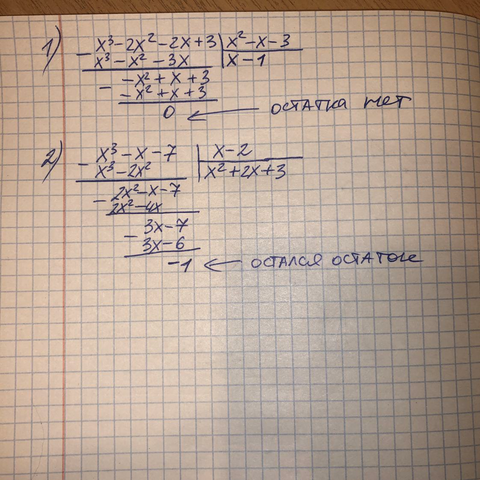 1) x³-2x²-2x+3 | x²-x-3
- x³-x²-3x | x-1
- -x²+x+3
-x²+x+3
0 ← ОСТАТКА НЕТ
2) x³-x-7 | x-2
- x³-2x² | x²+2x+3
- 2x²-x-7
2x²-4x
- 3x-7
3x-6
-1 ← ОСТАЛСЯ ОСТАТОК